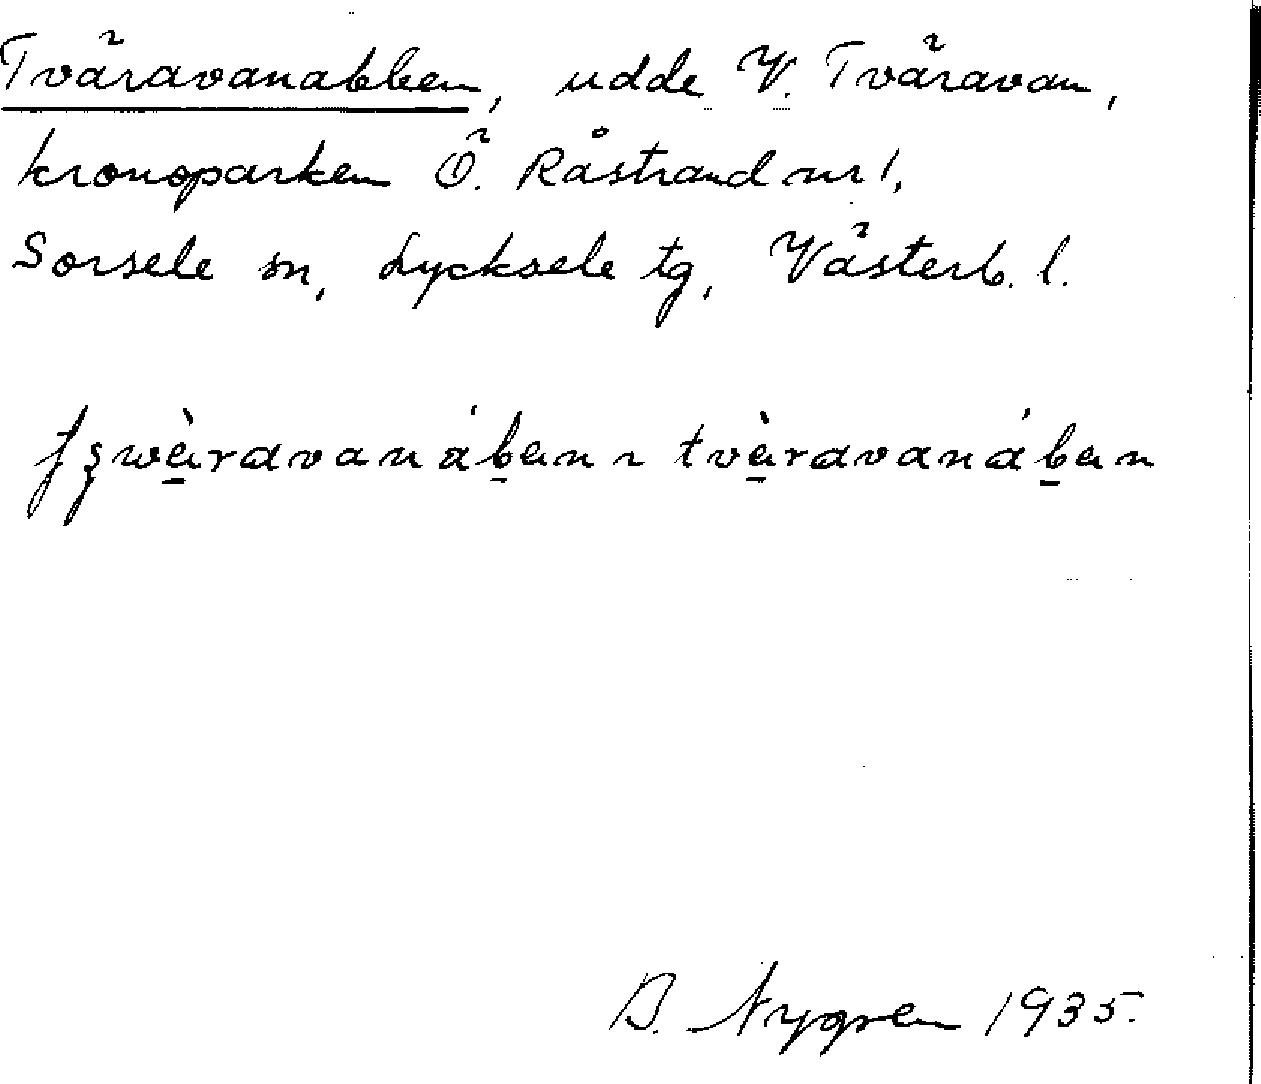 Tväravanabben, udde V. Tväravan,
kronoparken Ö. Råstrand nr 1,
Sorsele sn, Lycksele tg, Västerb. l.
tväravanában
B. Nygren 1935.